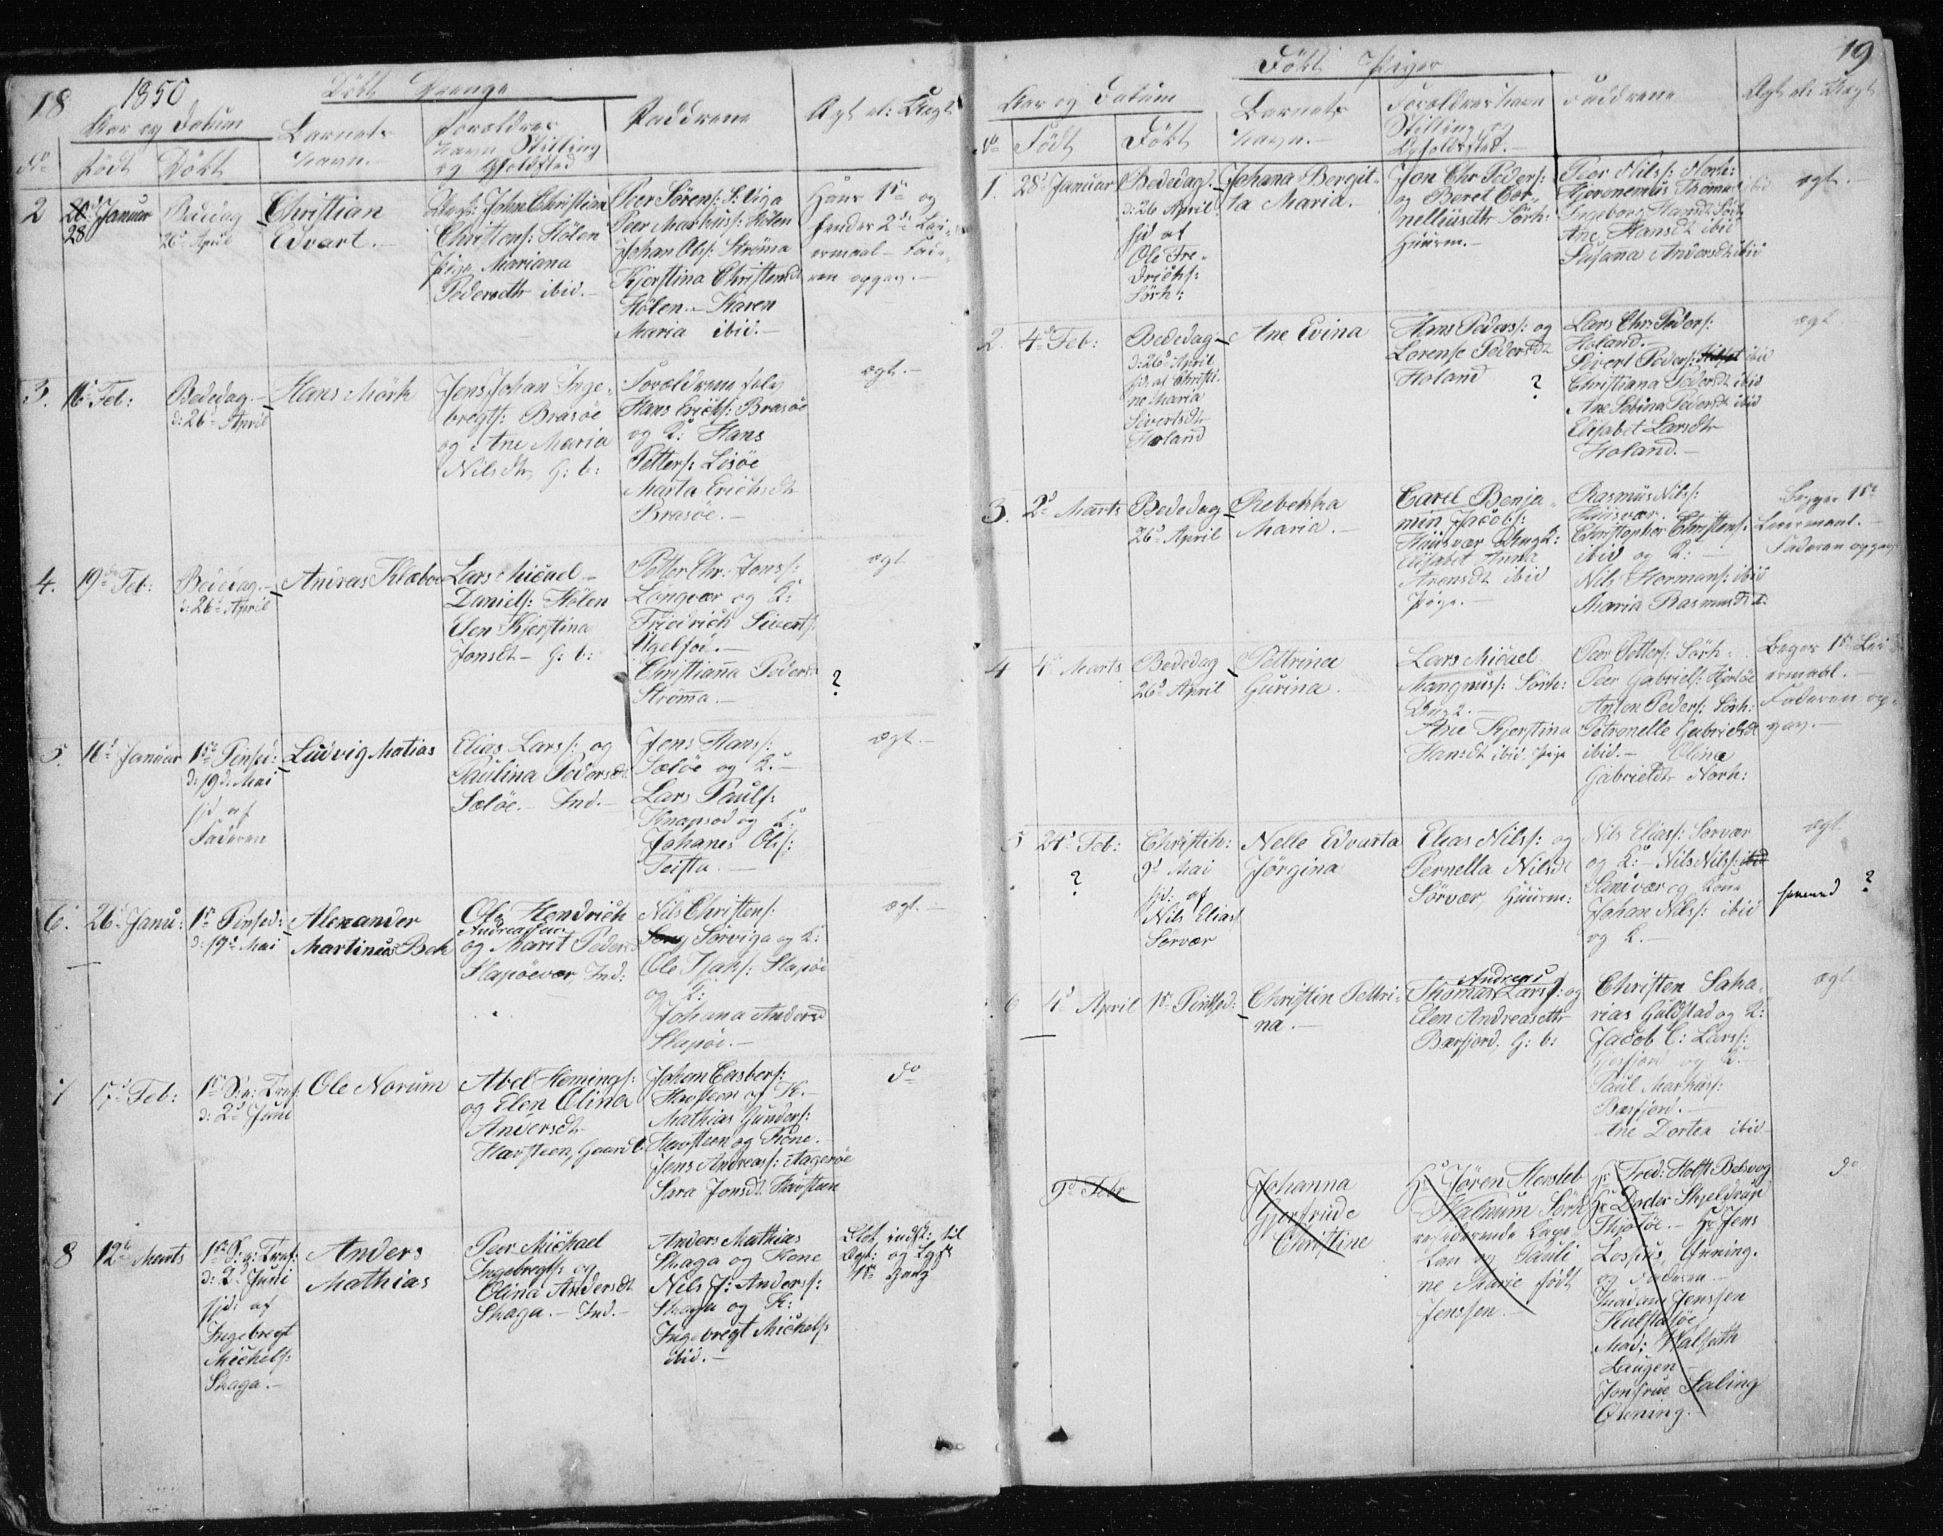 18
1850
Døbt Drenge
Aar og Datum
Barnets
Navn.
Forældres
Navn, Stilling
og Opholdsted
Faddrene
Ægt el: Uægt
No
Født
Døbt
2
28 Januar
26 April
Christian
Edvart.
Johan Christian
Christens: Hølen
Pige Mariana
Pedersdtr ibid.
Peer Sørens: S: Viga
Peer Markus: Hølen
Johan Ols: Strøma
Kjerstina Christensdt
Hølen. Karen
Maria ibid.
Hans 1ste og
hendes 2d Lei-
ermaal - Fade-
ren opgav.
3.
16 Feb:
Bededag
d: 26 April
Hans Mörk
Jens Johan Inge-
bregts: Brasøe
og Ane Maria
Nilsdtr, G: b:
Forældrene selv
Hans Erichs: Brasøe
og K: Hans
Petters: Lisöe
Marta Erichsdt
Brasøe.
ægt.
4.
19de Feb:
Bededag
d: 26 April
Andreas Klæboe
Lars Michael
Daniels: Hölen
Elen Kjerstina
Jonsdt G: b:
Petter Chr. Jons:
Longvær og K:
Fridrich Siverts:
Christianna Pedersdt
Ströma.
ægt
?
5.
10d Januar
1ste Pinsed:
d: 19d Mai
hjd af
Faderen
Ludvig Matias
Elias Lars: og
Paulina Pedersdt
Sæløe. Ind.
Jens Hans:
Sæløe og K.
Lars Pauls:
og K:
Johanes Ols:
Teista.
ægt.
6.
26d Janu:
1ste Pinsed:
d: 19d Mai
Alexander
Martinus Bek
Ole Hendrich
Andreassen
og Marit Peders
Slapöevær, Ind:
Nils Christens:
Sörviga og K:
Ole Isaks: Slapöe
og K:
Johana Andersd
Slapöe.
ægt.
7
17d Feb:
1ste S: e: Tref:
d: 2d Juni
Ole Norum
Abel Hemings:
og Elen Olina
Andersdt
Havsteen, Gaardb.
Johan Casbers:
Havsteen og K.
Mathias Gunders:
Havsteen og Kone.
Jens Andreas: Aagerøe
Sara Jonsdt Havsteen
do
8
12te Marts
1ste S: e: Tref:
d: 2d Juni
hjd: af
Ingebregt
Michels:
Skaga.
Anders
Mathias
Peer Michael
Ingebregts: og
Olina Andersdt
Skaga. Ind.
Anders Mathias
Skaga og Kone
Nils J: Anders:
Skaga og K:
Ingebregt Michels:
ibid.
19
Døbt Piger
Aar og Datum
Barnets
Navn.
Forældres Navn
Stilling og
Opholdsted.
Faddrene
Ægt el: Uægt
No
Født
Døbt
1.
28d Januar
Bededag
d: 26 April
hjd af
Ole Fre-
drichs:
Sörh:
Johana Bergit-
ta Maria.
Jon Chr Peders:
og Beret Cor-
nelliusdtr Sörh:
Huusm.
Peer Nils: Norh:
Hjeronemus Thomas: ibid
Ingeborg Hansdt Sörh
Ane Hansdt ibid
Susana Andersdt ibid
ægt.
2.
4de Feb:
Bededag
d: 26d April
hjd af Christi-
ne Maria
Sivertsdtr
Høland
Ane Evina
Hans Peders: og
Lorense Pedersdt
Holand
?
Lars Chr: Peders:
Holand.
Sivert Peders: ibid
Christiana Pedersdt ibid
Ane Sebina Pedersdt ibid
Elisabet Larsdtr
Holand.
ægt
3.
2d Marts
Bededag
26d April
Rebekka
Maria.
Carel Benja-
min Jacobs:
Huusvær Ung K:
Elisabet Anna
Arensdt ibid
Pige.
Rasmus Nils:
Huusvær.
Christopher Christens:
ibid og K:
Nils Hermans: ibid
Maria Rasmusdt i:
Begges 1ste
Leiermaal.
Faderen opgav
4
4d Marts
Bededag
26d April
Pettrina
Gurina.
Lars Michael
Mangnus: Sörh:
Ung K.
Ane Kjerstina
Hansdt ibid. Pige
Peer Petters: Sörh:
Peer Gabriels:
Anton Peders: Sörh:
Petronelle Gabrielsdt
ibid. Olina
Gabrielsdt Norh:
Beges 1ste Lei-
ermaal.
Faderen op-
gav.
5
24d Feb:
?
Christih:
9d Mai
hjd: af
Nils Elias:
Sörvær
Nelle Edvarta
Jörgina
Elias Nils: og
Pernella Nilsdt
Sörvær, Huusm:
Nils Elias: Sorvær
og K: Nils Nils:
og Kone
Johan Nils: ibid
og K.
ægt
?
6
4d April
1ste Pintsed:
Christin Pettri-
na.
Andreas
Thomas Lars: og
Elen Andreasdtr
Bærfjord. G: b:
Christen Saha-
rias Guldstad og K:
Jacob C: Lars:
og K:
Paul Markus:
Bærfjord.
Ane Dortea ibid
ægt
9de Febr
Johanna
Gjertrude
Christine
Hr Sören Hersleb
Walnum Sörh
residerende Cape-
lan og Pauli-
ne Marie født
Jenssen.
Hr Fred: Holst Belsvog
Hr Doctor Skjeldrup
Thjøtøe. Hr Jens
og Faderen
Madam Jenssen
Mad: Walseth
Laugen
Jomfrue
do